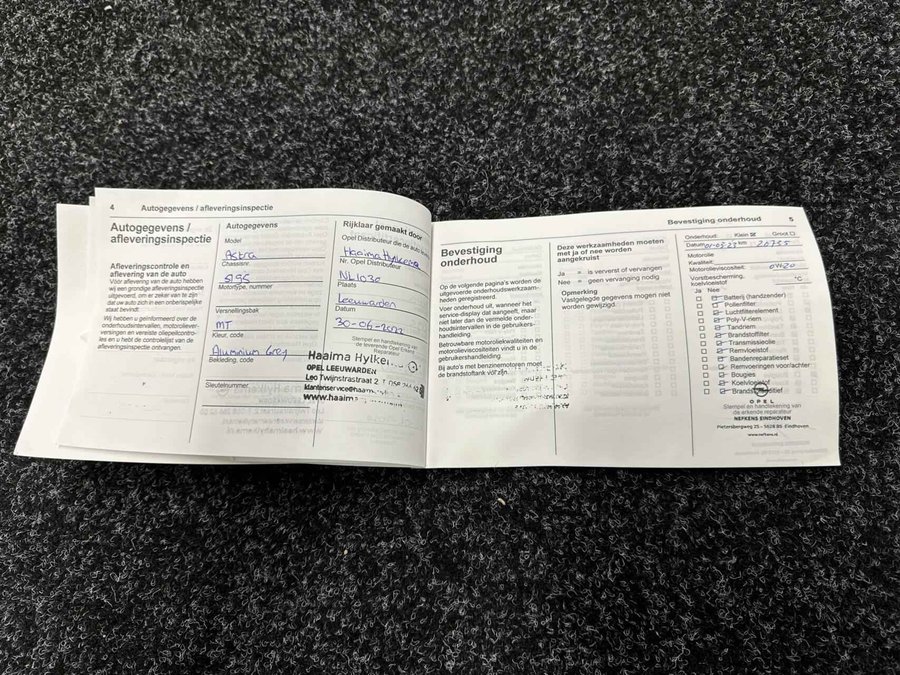 4 Autogegevens / afleveringsinspectie
Autogegevens /
afleveringsinspectie
Afleveringscontrole en
aflevering van de auto
Vóór aflevering van de auto hebben
wij een grondige afleveringsinspectie
uitgevoerd, om er zeker van te zijn
dat uw auto zich in een onberispelijke
staat bevindt.
Wij hebben u geïnformeerd over de
onderhoudsintervallen, motoroliever-
versingen en vereiste oliepeilcontro-
les en u hebt de controlelijst van de
afleveringsinspectie ontvangen.
Autogegevens
Model
Astra
Chassisnr.
S195
Motortype, nummer
Versnellingsbak
MT
Kleur, code
Aluminium Grey
Bekleding, code
Sleutelnummer
Rijklaar gemaakt door
Opel Distributeur die de auto
Haaima Hylkema
Nr. Opel Distributeur
NL1030
Plaats
Leeuwarden
Datum
30-06-2022
Stempel en handtekening van
de leverende Opel Erkend
Reparateur
Haaima Hylke
OPEL LEEUWARDEN
Leo Twijnstrastraat 2
klantenservice@haaima
www.haaim
Bevestiging onderhoud 5
Bevestiging
onderhoud
Op de volgende pagina's worden de
uitgevoerde onderhoudswerkzaam-
heden geregistreerd.
Voer onderhoud uit, wanneer het
service-display dat aangeeft, maar
niet later dan de vermelde onder-
houdsintervallen in de gebruikers-
handleiding.
Betrouwbare motoroliekwaliteiten en
motorolieviscositeiten vindt u in de
gebruikershandleiding.
Bij auto's met benzinemotoren moet
de brandstoftank vol zijn.
Deze werkzaamheden moeten
met ja of nee worden
aangekruist
Ja = is ververst of vervangen
Nee = geen vervanging nodig
Opmerking
Vastgelegde gegevens mogen niet
worden gewijzigd.
Onderhoud: Klein Groot
Datum 01-05-23 km 20755
Motorolie
Kwaliteit:
Motorolieviscositeit: 0W20
Vorstbescherming,
koelvloeistof °C
Ja Nee
Batterij (handzender)
Pollenfilter
Luchtfilterelement
Poly-V-riem
Tandriem
Brandstoffilter
Transmissieolie
Remvloeistof
Bandenreparatieset
Remvoeringen voor/achter
Bougies
Koelvloeistof
OPEL
Stempel en handtekening van
de erkende reparateur
NEFKENS EINDHOVEN
Pietersbergweg 25 - 5628 BS Eindhoven
www.nefkens.nl